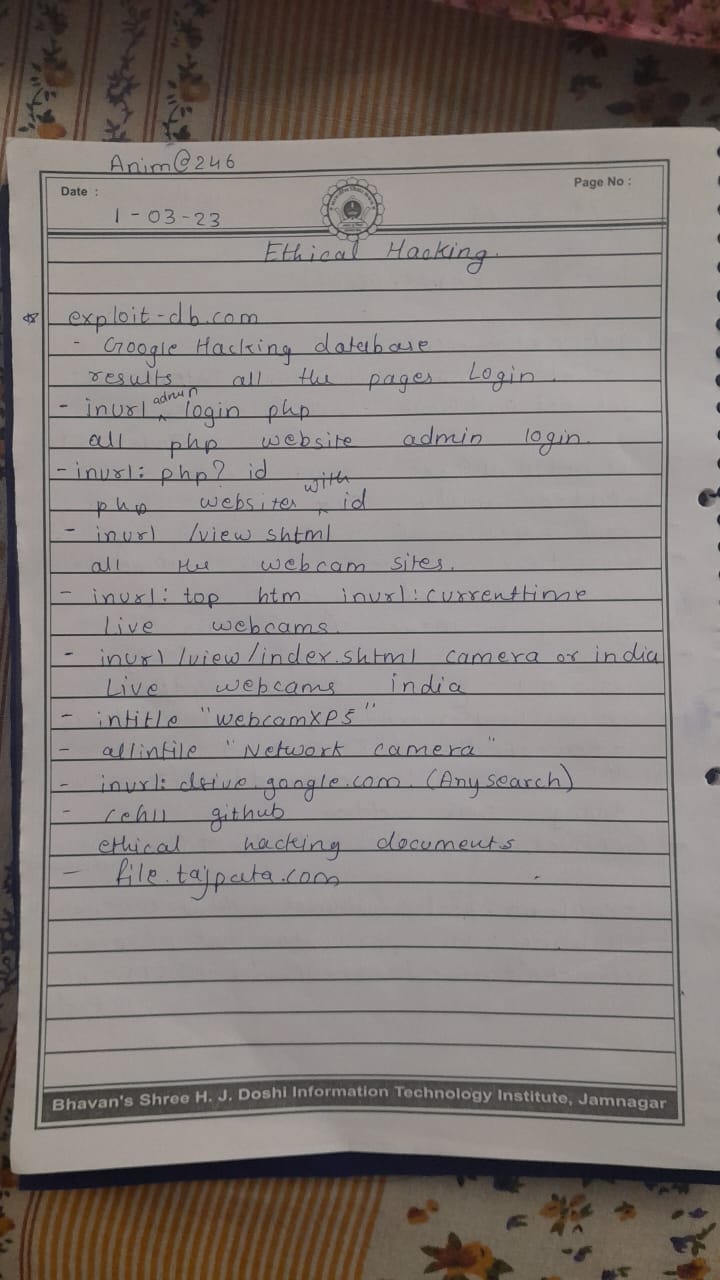 Anim@246
Date :
Page No :
1-03-23
Ethical Hacking.
exploit-db.com
- Google Hacking database
results all the pages Login.
- inurl admin login php
all php website admin login.
- inurl: php? id
php websites with id
- inurl /view shtml
all the webcam sites.
- inurl: top htm inurl: currenttime
Live webcams.
- inurl /view/index.shtml camera or india
Live webcams india
- intitle "webcamXP5"
- allintile "Network camera"
- inurl: drive.google.com. (Any search)
- ceh11 github
ethical hacking documents
- file.tajpata.com
Bhavan's Shree H. J. Doshi Information Technology Institute, Jamnagar